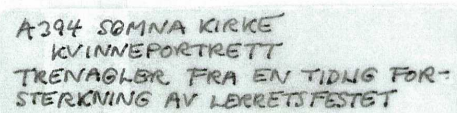 A394 SØMNA KIRKE
KVINNEPORTRETT
TRENAGLER FRA EN TIDLIG FOR-
STERKNING AV LERRETSFESTET